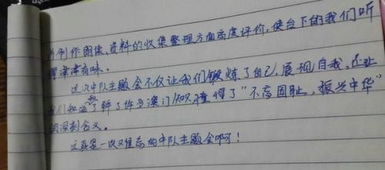 制作图表、资料的收集整理方面高度评价，使台下的我们听
得津津有味。
这次中队主题会不仅让我们锻炼了自己，展现自我，还让
我们知道了许多澳门知识，懂得了“不忘国耻，振兴中华”
的深刻含义。
这真是一次难忘的中队主题会啊！